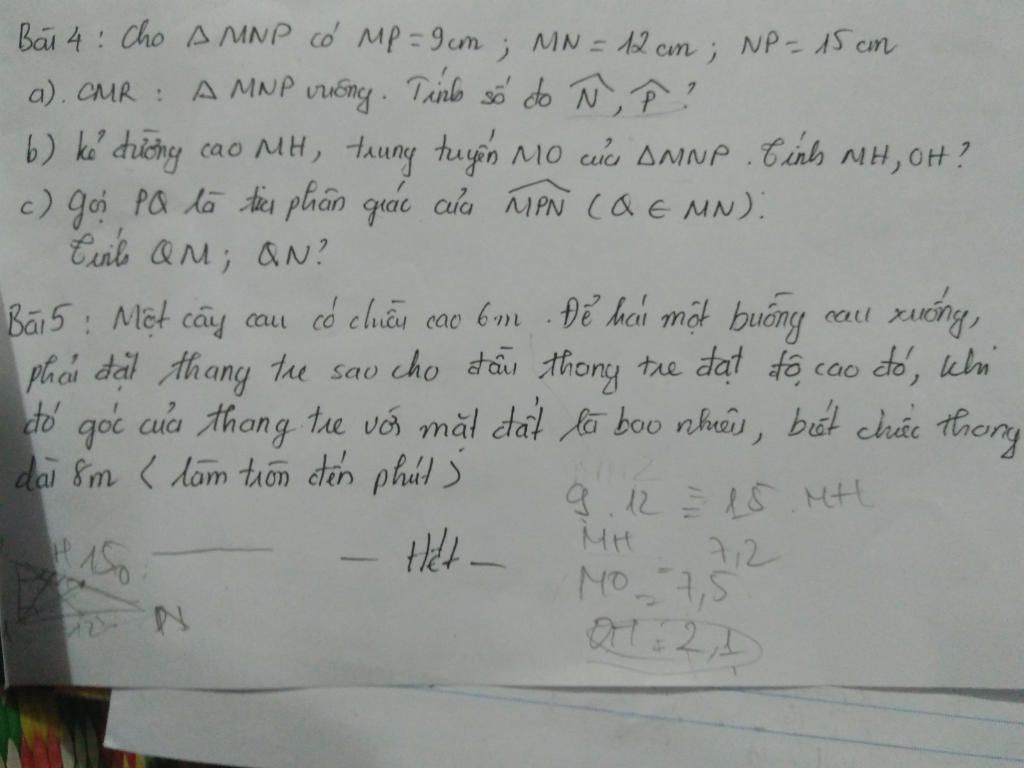 Bài 4 : Cho Δ MNP có MP = 9 cm ; MN = 12 cm ; NP = 15 cm
a). CMR : Δ MNP vuông. Tính số đo N̂, P̂ ?
b) kẻ đường cao MH, trung tuyến MO của ΔMNP. Tính MH, OH ?
c) gọi PQ là tia phân giác của MPN (Q ∈ MN).
Tính QM ; QN ?
Bài 5 : Một cây cau có chiều cao 6m. Để hái một buồng cau xuống,
phải đặt thang tre sao cho đầu thang tre đạt độ cao đó, khi
đó góc của thang tre với mặt đất là bao nhiêu, biết chiếc thang
dài 8m (làm tròn đến phút)
9 . 12 = 15 . MH
MH 7,2
MO = 7,5
OH = 2,1
— Hết —
H 15
12 N